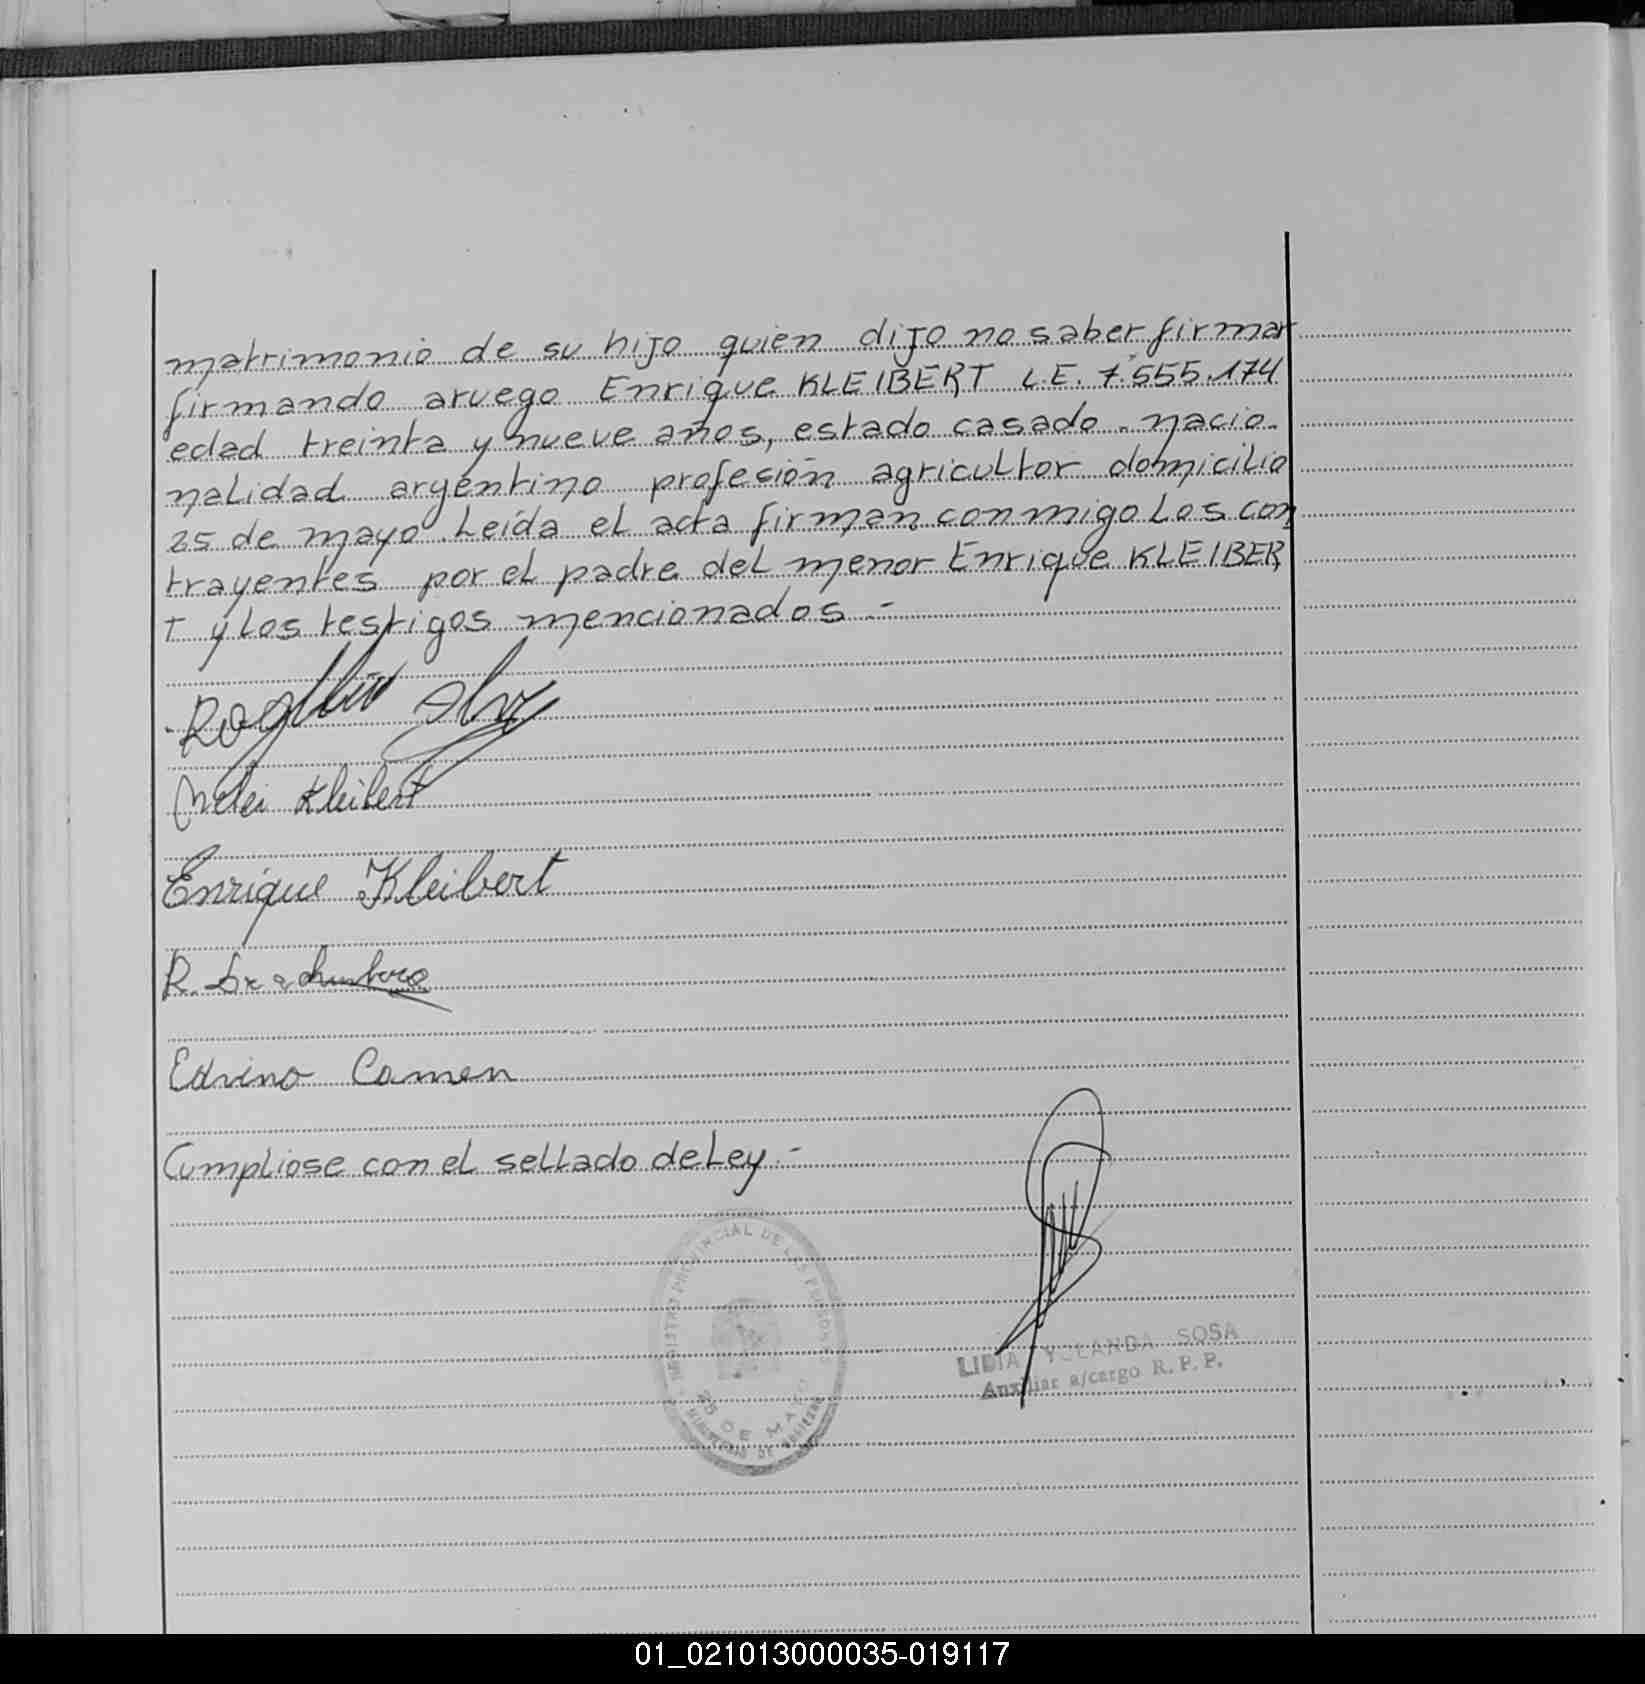 matrimonio de su hijo quien dijo no saber firmar
firmando aruego Enrique KLEIBERT L.E. 7.555.174
edad treinta y nueve años, estado casado. nacio-
nalidad argentino profeción agricultor domicilio
25 de mayo. Leída el acta firman conmigo Los con
trayentes por el padre del menor Enrique KLEIBER
T y Los testigos mencionados.-
Kleibert
Enrique Kleibert
R.
Edvino Camen
Cumpliose con el sellado de Ley.-
REGISTRO PROVINCIAL DE LAS PERSONAS
25 DE MAYO
MINISTERIO DE
LIDIA YOLANDA SOSA
Auxiliar a/cargo R. P. P.
01_021013000035-019117